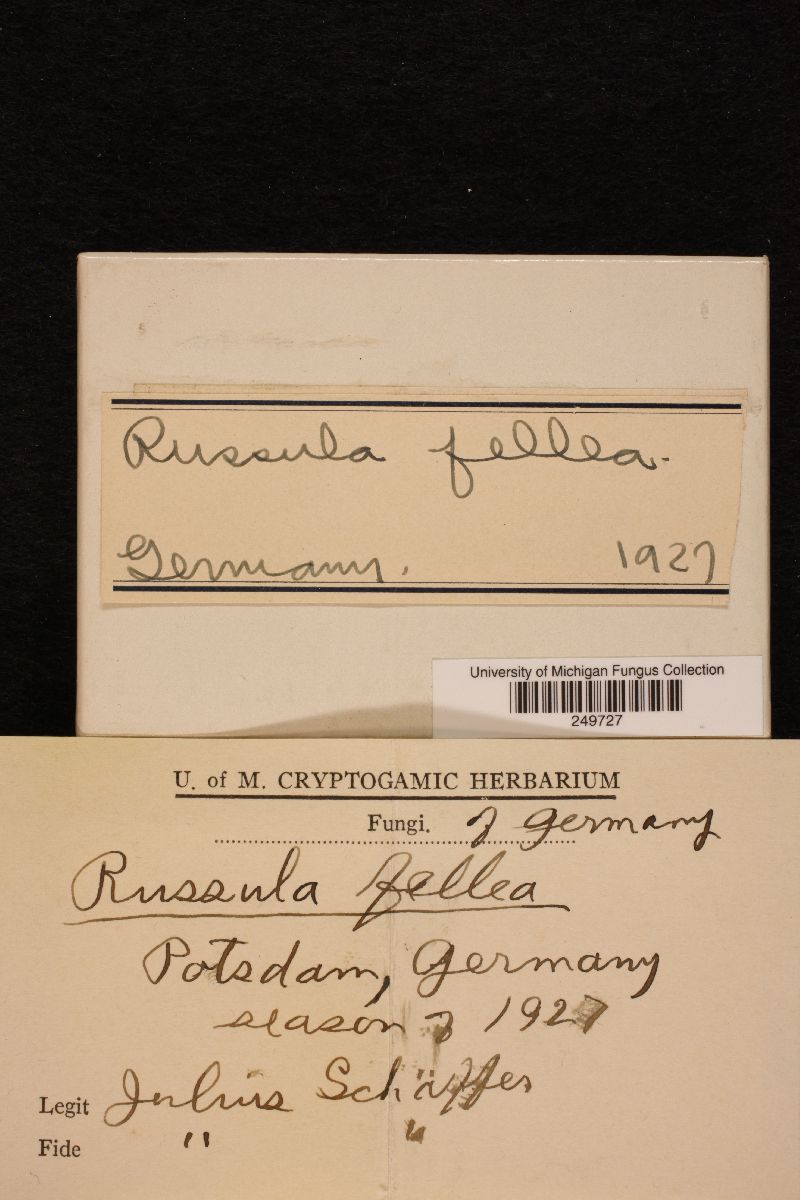 Russula fellea.
Germany. 1927
University of Michigan Fungus Collection
249727
U. of M. CRYPTOGAMIC HERBARIUM
Fungi. of Germany
Russula fellea
Potsdam, Germany
season of 1927
Legit Julius Schäffer
Fide " "